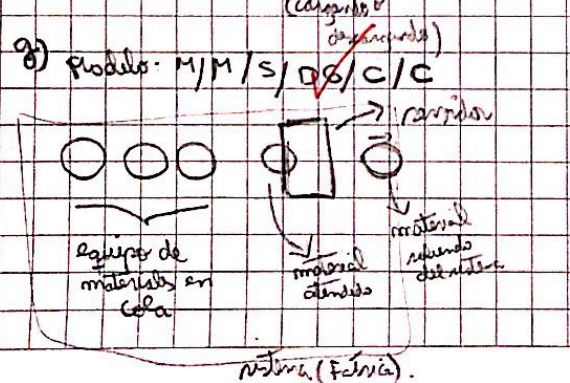 (cargando o
descargando)
g) Modelo: M/M/S/DG/C/C
servidor
equipo de
materiales en
cola
material
atendido
material
saliendo
del sistema
sistema (Fábrica).